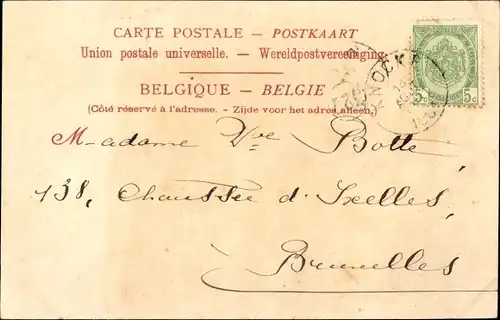 CARTE POSTALE – POSTKAART
Union postale universelle. – Wereldpostvereeniging
BELGIQUE – BELGIE
(Côté réservé à l'adresse. - Zijde voor het adres alleen.)
KNOCKE
5c 5c
Madame Vve Botte
138, Chaussée d'Ixelles,
Bruxelles